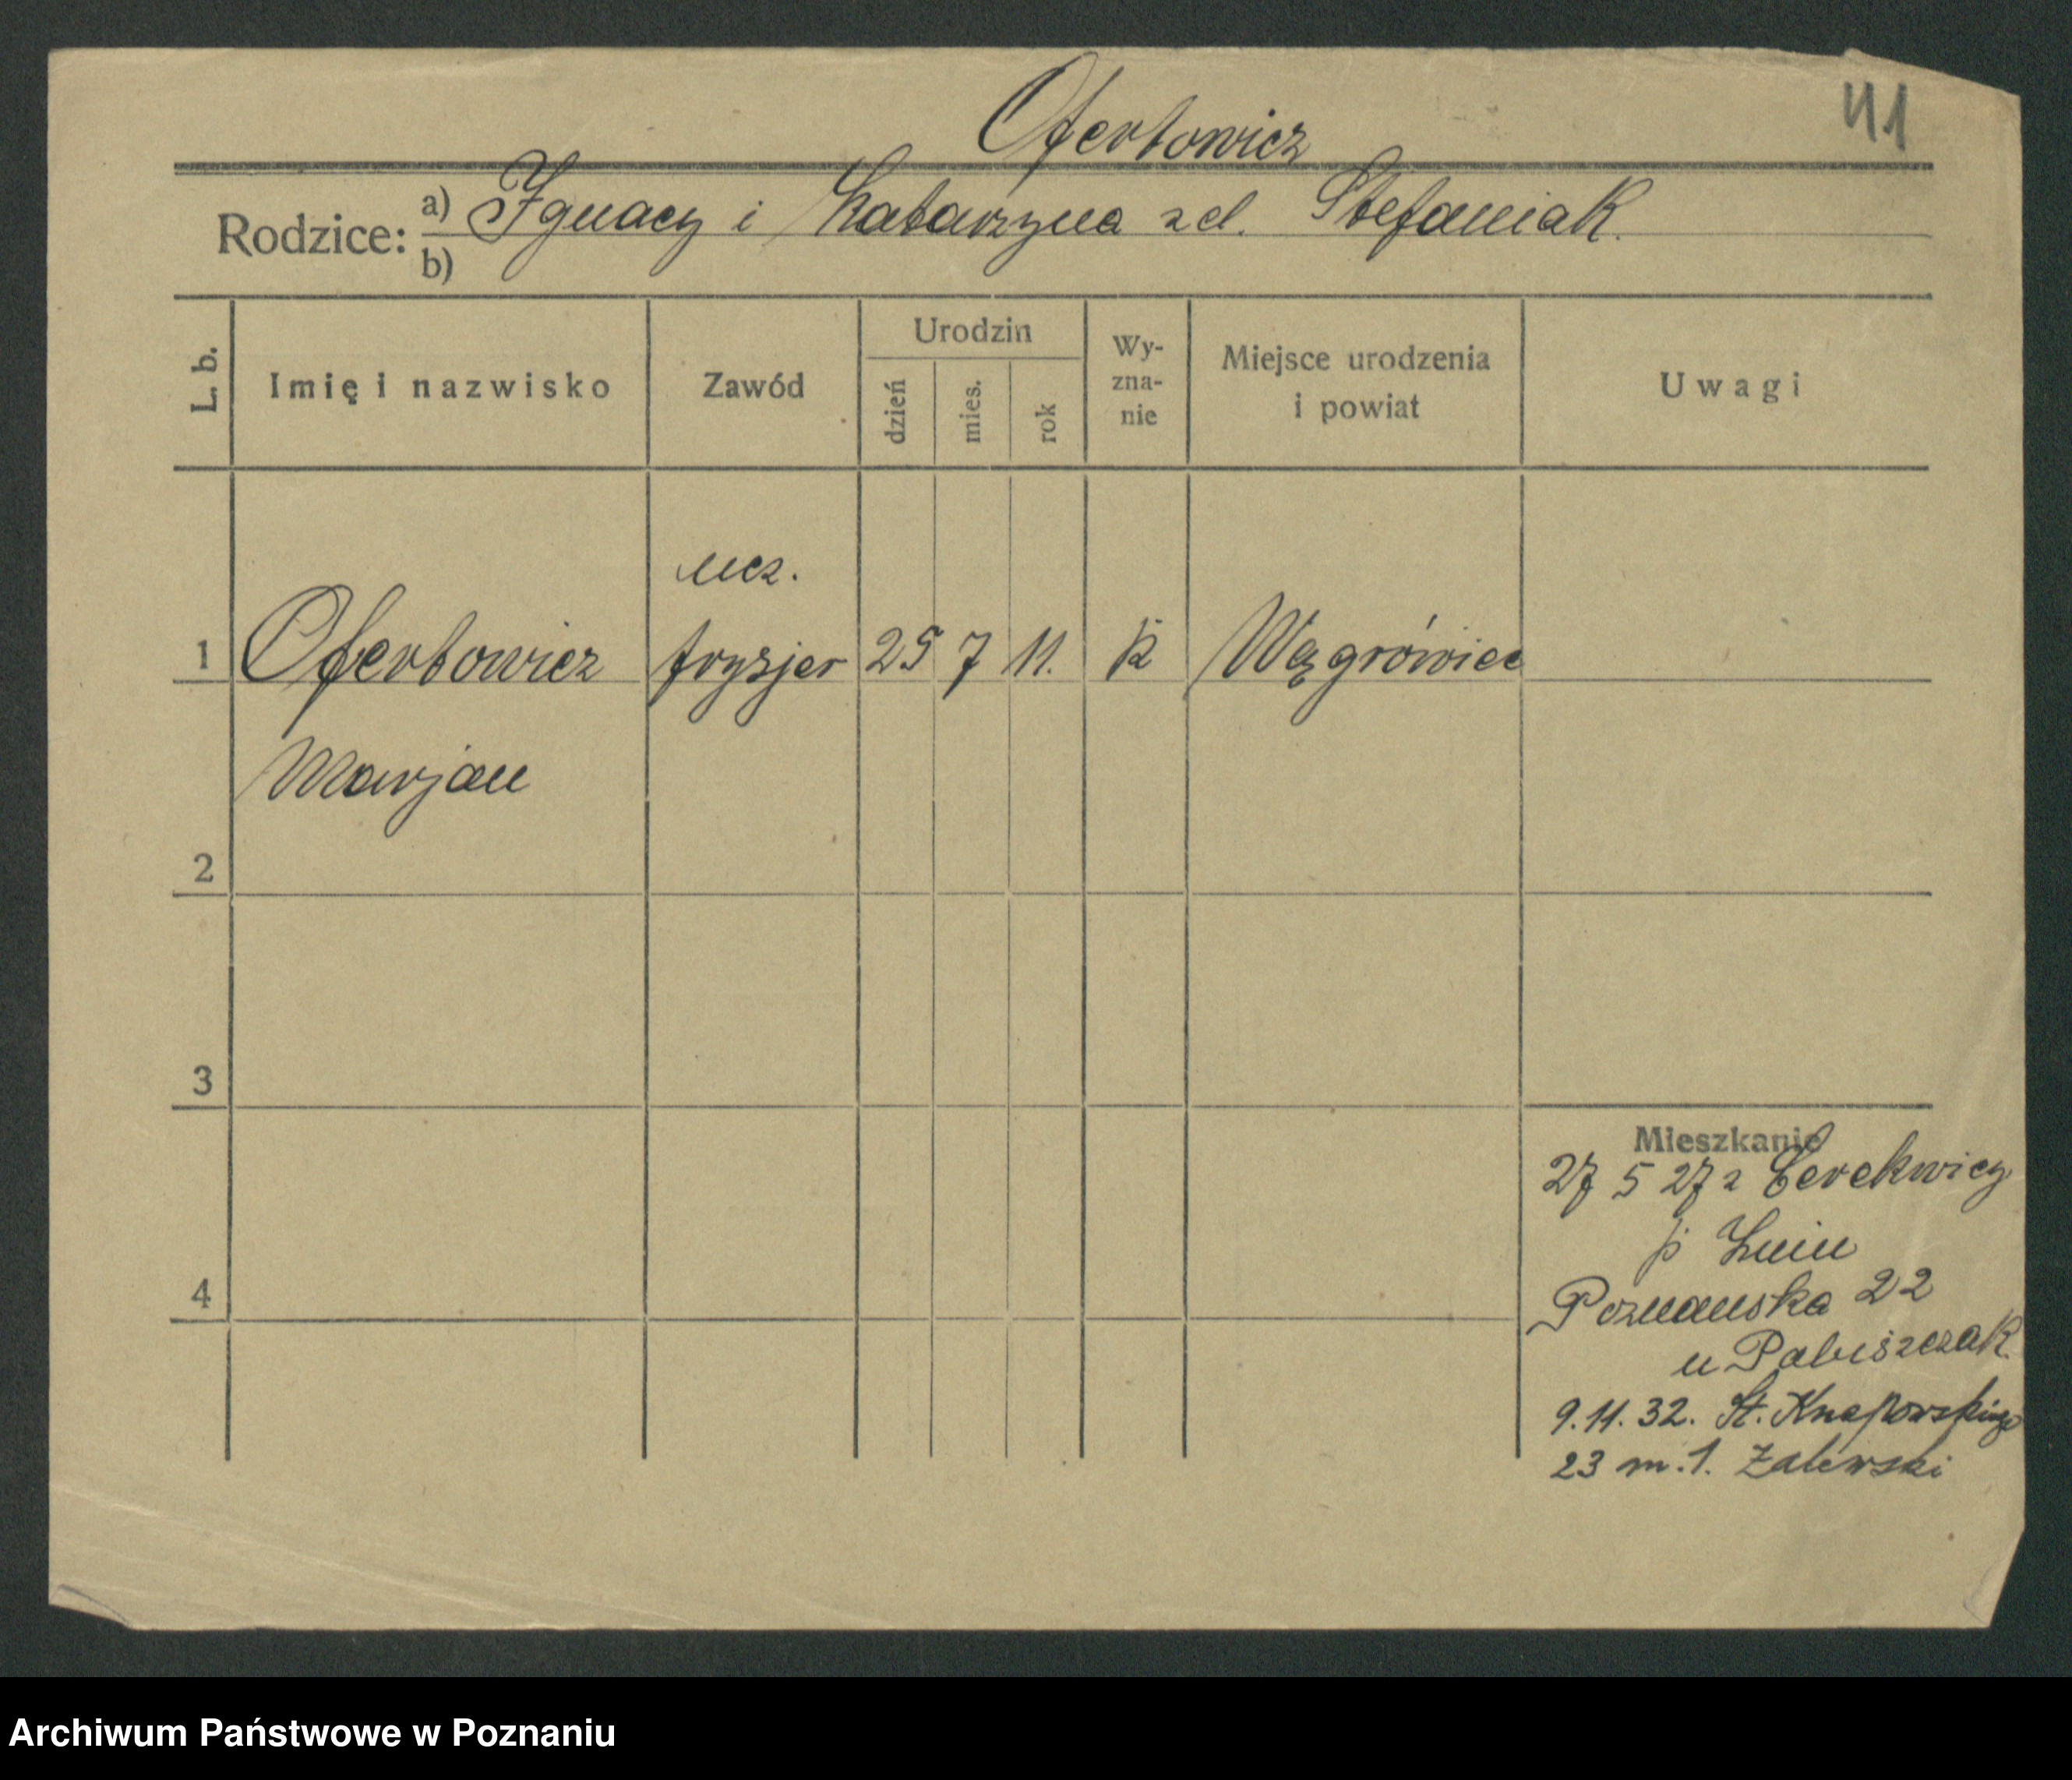 41
Ofertowicz
Rodzice: a) Ignacy i Katarzyna zd. Stefaniak.
b)
L. b.
Imię i nazwisko
Zawód
Urodzin
dzień
mies.
rok
Wy-
zna-
nie
Miejsce urodzenia
i powiat
Uwagi
ucz.
1 Ofertowicz fryzjer 25 7 11. k Wągrówiec
Marjan
2
3
4
Mieszkanie
27 5 27 z Cerekwicy
p Żnin
Poznanska 22
u Pabiszczak
9.11.32. St. Knapowskiego
23 m.1. Zalewski
Archiwum Państwowe w Poznaniu